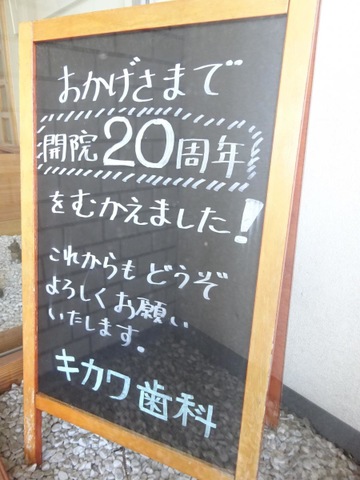 おかげさまで
開院20周年
をむかえました!
これからもどうぞ
よろしくお願い
いたします。
キカワ歯科